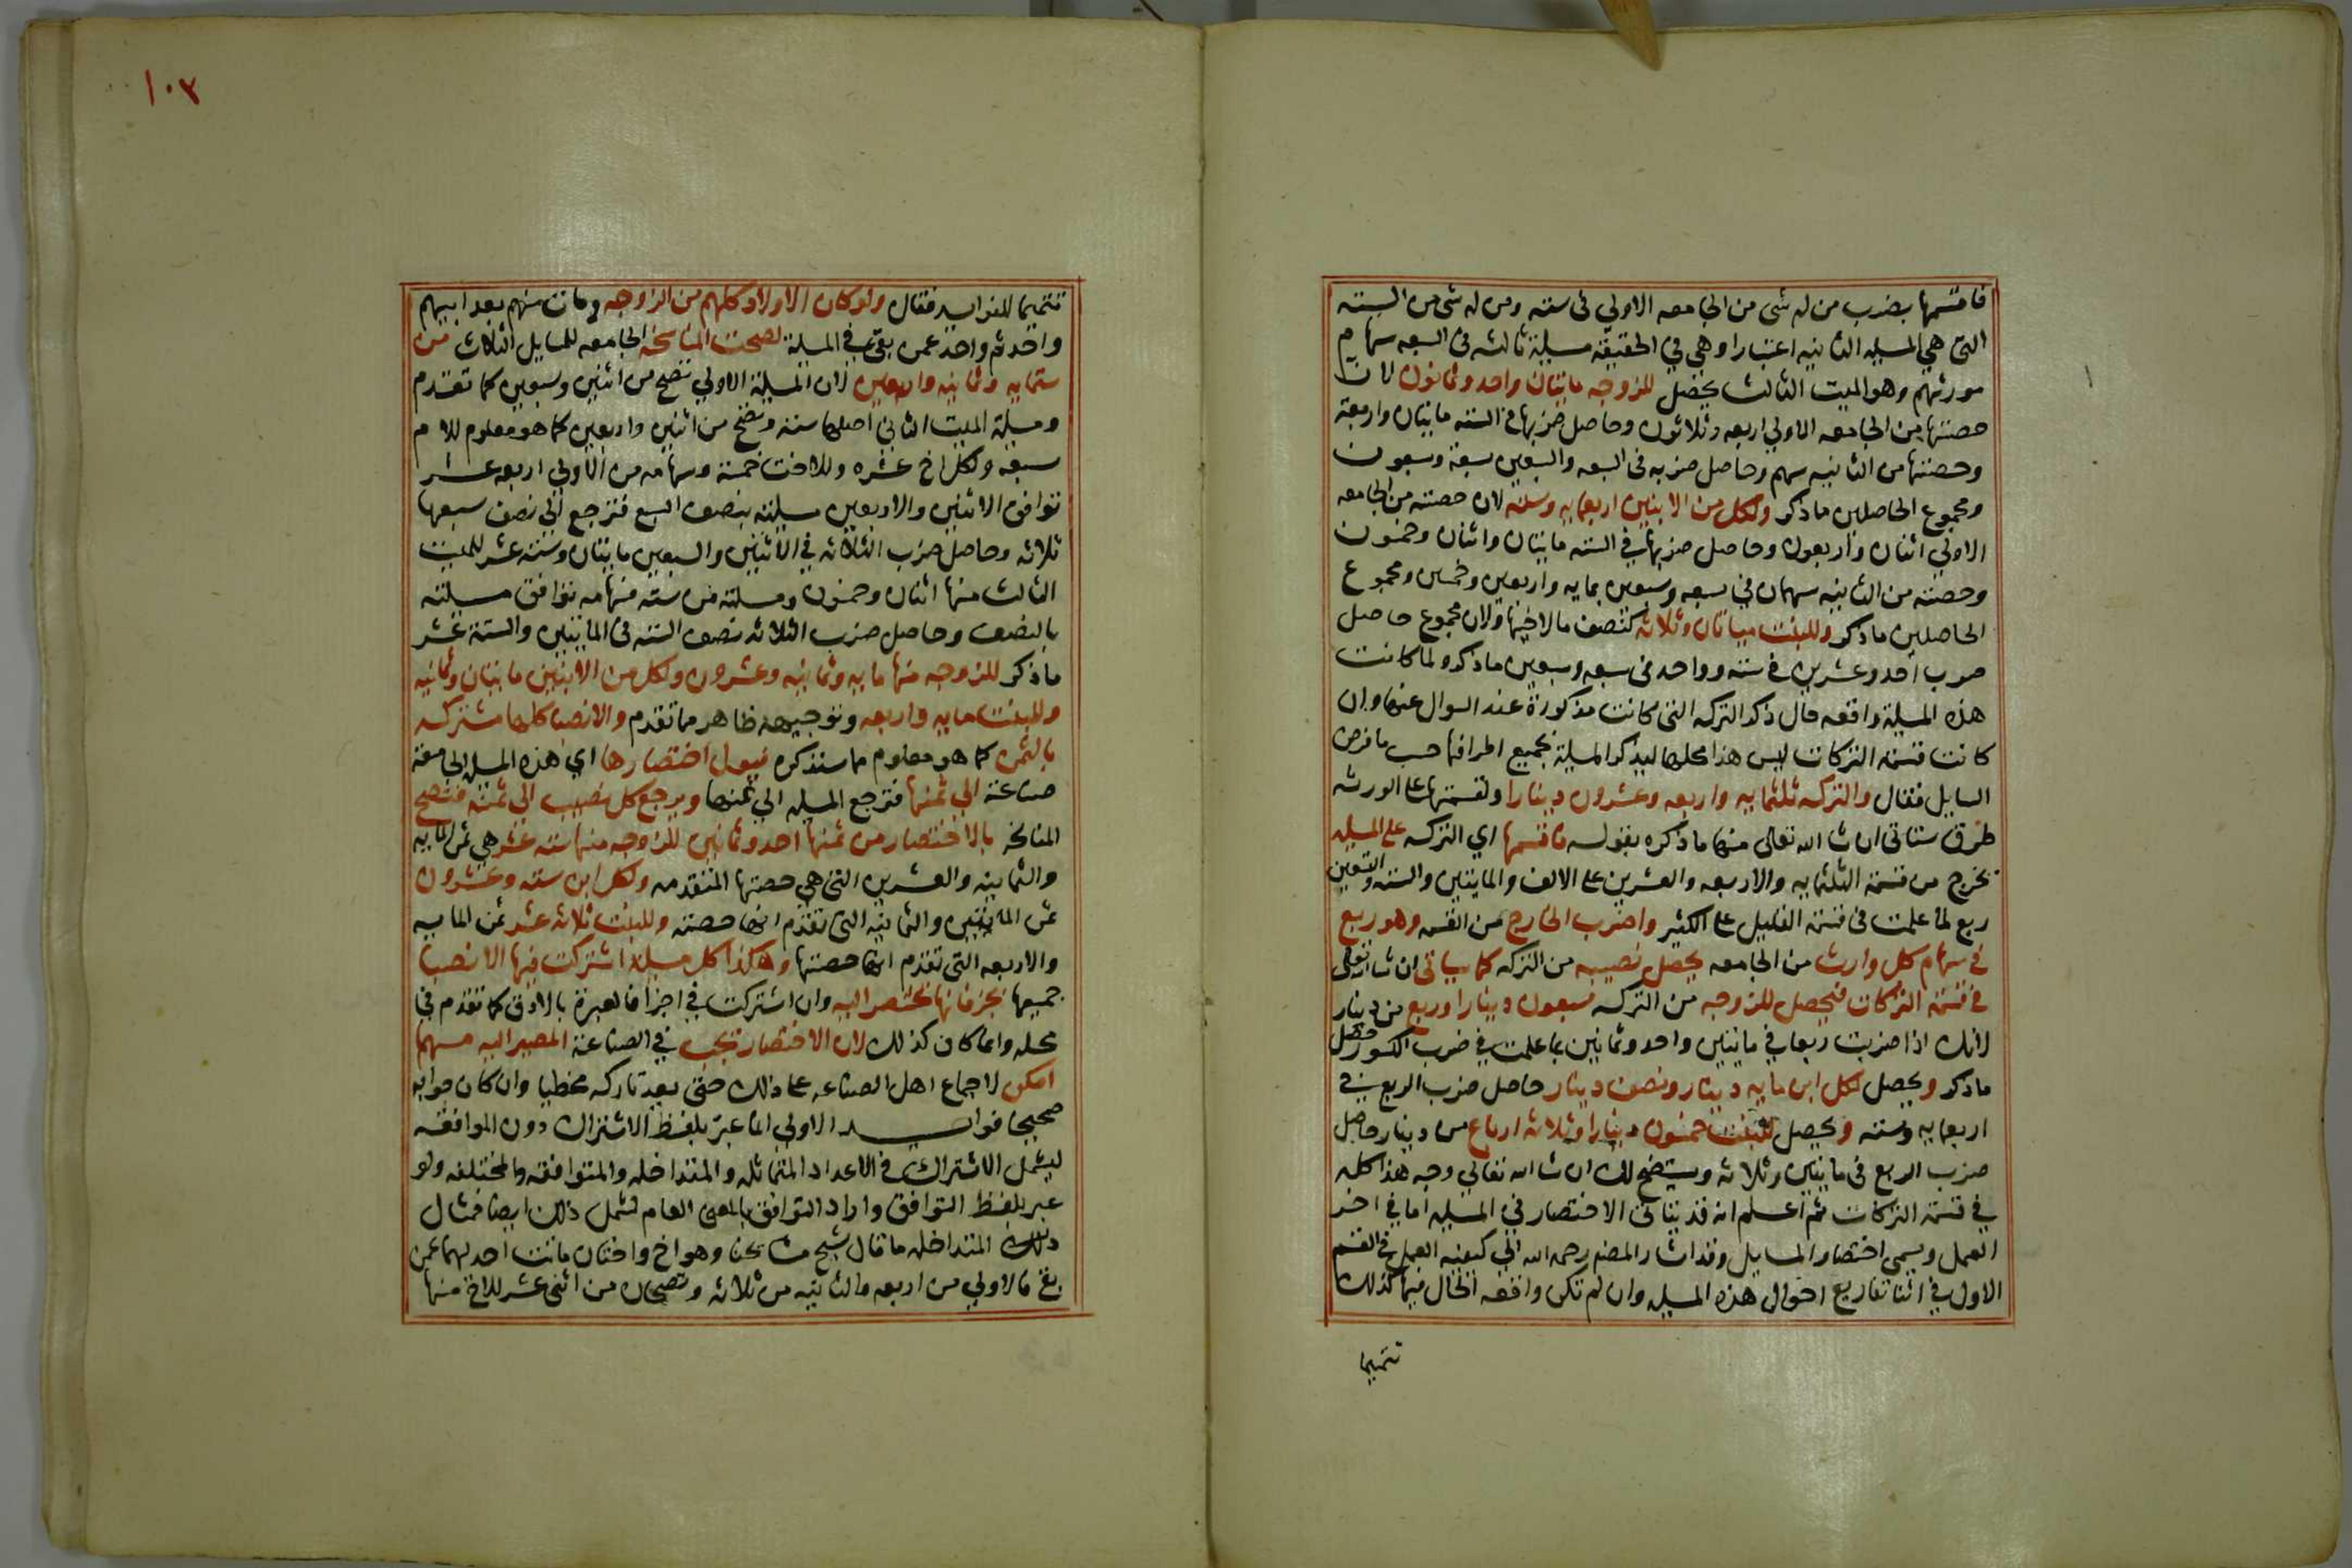 فاقسمها بضرب من له شى من الجامعه الاولي فى سته ومن له شى من السته
التى هي المسيله الثانيه اعتبارا وهي في الحقيقة مسيلة ثالثه فى السبعه سهام
مورثهم وهو الميت الثالث يحصل للزوجه مايتان واحد وثمانون لان
حصتها من الجامعه الاولي اربعه وثلاثون وحاصل ضربها فى السته مايتان واربعة
وحصتها من الثانيه سهم وحاصل ضربه فى السبعه والسبعين سبعة وسبعون
ومجموع الحاصلين ماذكر ولكل من الابنين اربعمايه وسته لان حصته من الجامعه
الاولي اثنان واربعون وحاصل ضربها في السته مايتان واثنان وخمسون
وحصته من الثانيه سهمان في سبعه وسبعين بمايه واربعين وخمسين ومجموع
الحاصلين ماذكر وللبنت ميتان وثلاثه كنصف مالاخيها ولان مجموع حاصل
ضرب احد وعشرين فى سته وواحد فى سبعه وسبعين ماذكر ولما كانت
هذه المسيلة واقعه حال ذكر التركه التى كانت مذكورة عند السوال عنها وان
كانت قسمة التركات ليس هذا محلها ليذكر المسيلة بجميع اطرافها حسب مافرض
السايل فقال والتركه ثلثمايه واربعه وعشرون دينارا ولقسمتها على الورثه
طرق ستاتى ان شا الله تعالى منها ماذكره بقوله فاقسمها اي التركه على المسيله
يخرج من قسمة الثلثمايه والاربعه والعشرين على الالف والمايتين والسته والتسعين
ربع لما علمت فى قسمة القليل على الكثير واضرب الخارج من القسمه وهو ربع
في سهام كل وارث من الجامعه يحصل نصيبه من التركه كما سياتى ان شا الله تعالى
فى قسمة التركات فيحصل للزوجه من التركه سبعون دينارا وربع من دينار
لانك اذا ضربت ربعا في مايتين واحد وثمانين بما علمت في ضرب الكسور حصل
ماذكر ويحصل لكل ابن مايه دينار ونصف دينار حاصل ضرب الربع في
اربعمايه وسته ويحصل للبنت خمسون دينارا وثلاثه ارباع من دينار حاصل
ضرب الربع فى مايتين وثلاثه ويستضح لك ان شا الله تعالي وجه هذا كله
في قسمة التركات ثم اعلم انه قد يتاتى الاختصار في المسيله اما في اخر
العمل ويسمى اختصار المسايل وقد اشار المصنم رحمه الله الي كيفية العمل في القسم
الاول في اثنا تفاريع احوال هذه المسيله وان لم تكن واقعه الحال فيها كذلك
تتميما
١٠٣
تتميما للفوايد فقال ولو كان الاولاد كلهم من الزوجه ومات منهم بعد ابيهم
واحد ثم واحد عمن بقى في المسيلة لصحت المناسخه الجامعه للمسايل الثلاث من
ستمايه وثمانيه واربعين لان المسيلة الاولي تصح من اثنين وسبعين كما تقدم
ومسيلة الميت الثانى اصلها سته وتصح من اثنين واربعين كما هو معلوم للام
سبعه ولكل اخ عشره وللاخت خمسة وسهامه من الاولي اربعه عشر
توافق الاثنين والاربعين مسيلته بنصف السبع فترجع الي نصف سبعها
ثلاثه وحاصل ضرب الثلاثه في الاثنين والسبعين مايتان وسته عشر للميت
الثالث منها اثنان وخمسون ومسيلته من سته فسهامه توافق مسيلته
بالنصف وحاصل ضرب الثلاثه نصف السته فى المايتين والستة عشر
ماذكر للزوجه منها مايه وثمانيه وعشرون ولكل من الابنين مايتان وثمانيه
وللبنت مايه واربعه وتوجيهه ظاهر مما تقدم والانصبا كلها مشتركه
بالثمن كما هو معلوم مما سنذكره فيول اختصارها اي هذه المسيله الجامعة
صناعة الي ثمنها فترجع المسيله الي ثمنها ويرجع كل نصيب الي ثمنه فتصح
المناسخه بالاختصار من ثمنها احد وثمانين للزوجه منها سته عشر هي ثمن المايه
والثمانيه والعشرين التى هي حصتها المتقدمه ولكل ابن سته وعشرون
ثمن المايتين والثمانيه التى تقدم انها حصته وللبنت ثلاثه عشر ثمن المايه
والاربعه التى تقدم انها حصتها وهكذا كل مسيلة اشتركت فيها الانصبا
جميعها بجز فانها تختصر اليه وان اشتركت في اجزا فالعبرة بالادق كما تقدم فى
محله وانما كان كذلك لان الاختصار يجب في الصناعة المصير اليه مهما
امكن لاجماع اهل الصناعه على ذلك حتى يعد تاركه مخطيا وان كان جوابه
صحيحا فوايد الاولي انما عبر بلفظ الاشتراك دون الموافقه
ليشمل الاشتراك فى الاعداد المتماثله والمتداخله والمتوافقه والمختلفه ولو
عبر بلفظ التوافق واراد التوافق بالمعنى العام لشمل ذلك ايضا فمثال
ذلك المتداخله ما قال شيخ مشايخنا وهو اخ واختان ماتت احدلهما عمن
بقى فالاولي من اربعه والثانيه من ثلاثه وتصحان من اثنى عشر للاخ منها